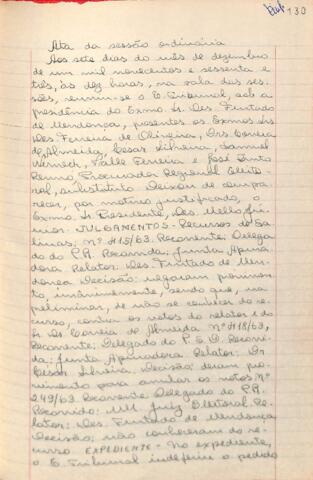 130
Ata da sessão ordinária
Aos sete dias do mês de dezembro
de um mil novecentos e sessenta e
três, às dez horas, na sala das ses-
sões, reuniu-se o E. Tribunal, sob a
presidência do Exmo. Sr. Des. Furtado
de Mendonça, presentes os Exmos. Srs.
Des. Ferreira de Oliveira, Drs. Correia
de Almeida, Cesar Silveira, Samuel
Werneck, Fadle Ferreira e José Pinto
Renno, Procurador Regional Eleito-
ral, substituto. Deixou de compa-
recer, por motivo justificado, o
Exmo. Sr. Presidente, Des. Mello Jú-
nior. JULGAMENTOS - Recursos de Sa-
linas: nº 415/63. Recorrente: Delegado
do P.R. Recorrida: Junta Apura-
dora. Relator: Des. Furtado de Men-
donça. Decisão: negaram provimen-
to, unânimemente, sendo que, na
preliminar, de não se conhecer do re-
curso, contra os votos do relator e do
Sr. Dr. Correia de Almeida. Nº 418/63,
Recorrente: Delegado do P.S.D. Recorri-
da: Junta Apuradora. Relator: Dr.
Cesar Silveira. Decisão: deram pro-
vimento para anular os votos. Nº
249/63. Recorrente: Delegado do P.R.
Recorrido: MM. Juiz Eleitoral. Re-
lator: Des. Furtado de Mendonça.
Decisão: não conheceram do re-
curso. EXPEDIENTE - No expediente,
o E. Tribunal indeferiu o pedido